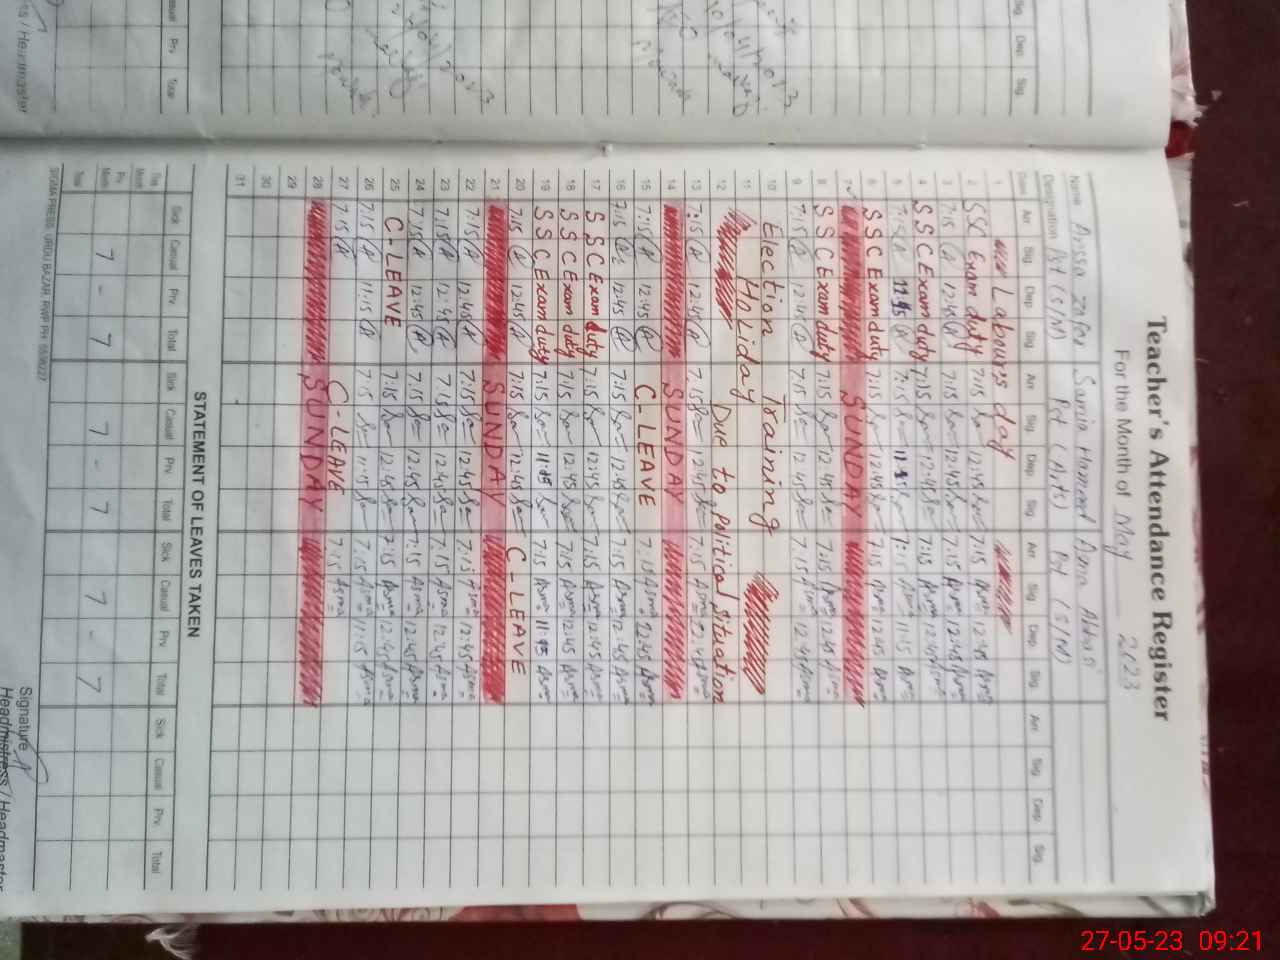 Teacher's Attendance Register
For the Month of May 2023
Name Anissa Zafar Samia Hammed Asma Abbasi
Designation Pst (S/M) Pst (Arts) Pst (S/M)
Date Arr Sig. Dep. Sig. Arr Sig. Dep. Sig. Arr Sig. Dep. Sig. Arr Sig. Dep. Sig.
1 Labours day
2 SSC Exam duty 7:15 12:45 7:15 Asma 12:45 Asma
3 7:15 A 12:45 A 7:15 12:45 7:15 Asma 12:45 Asma
4 SSC Exam duty 7:15 12:45 7:15 Asma 12:45 Asma
5 7:15 A 11:15 A 7:15 11:15 7:15 Asma 11:15 Asma
6 SSC Exam duty 7:15 12:45 7:15 Asma 12:45 Asma
7 SUNDAY
8 SSC Exam duty 7:15 12:45 7:15 Asma 12:45 Asma
9 7:15 A 12:45 A 7:15 12:45 7:15 Asma 12:45 Asma
10 Election Training
11 Holiday Due to Political situation
12
13 7:15 A 12:45 A 7:15 12:45 7:15 Asma 12:45 Asma
14 SUNDAY
15 7:15 A 12:45 A C-LEAVE 7:15 Asma 12:45 Asma
16 7:15 A 12:45 A 7:15 12:45 7:15 Asma 12:45 Asma
17 SSC Exam duty 7:15 12:45 7:15 Asma 12:45 Asma
18 SSC Exam duty 7:15 12:45 7:15 Asma 12:45 Asma
19 SSC Exam duty 7:15 11:15 7:15 Asma 11:15 Asma
20 7:15 A 12:45 A 7:15 12:45 C-LEAVE
21 SUNDAY
22 7:15 A 12:45 A 7:15 12:45 7:15 Asma 12:45 Asma
23 7:15 A 12:45 A 7:15 12:45 7:15 Asma 12:45 Asma
24 7:15 A 12:45 A 7:15 12:45 7:15 Asma 12:45 Asma
25 C-LEAVE 7:15 12:45 7:15 Asma 12:45 Asma
26 7:15 A 11:15 A 7:15 11:15 7:15 Asma 11:15 Asma
27 7:15 A C-LEAVE 7:15 Asma
28 SUNDAY
29
30
31
STATEMENT OF LEAVES TAKEN
Sick Casual Prv. Total Sick Casual Prv. Total Sick Casual Prv. Total Sick Casual Prv. Total
This Month
Prv Month 7 - 7 7 - 7 7 - 7
Total
SIGMA PRESS URDU BAZAR, RWP PH:
Signature
Headmistress / Headmaster
Sig. Dep. Sig.
Prv Total
/ Headmaster
27-05-23 09:21